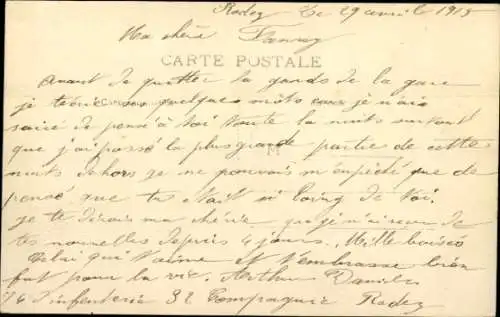 Rodez Le 29 avril 1915
Ma chère Fanny
CARTE POSTALE
Avant de quetter la gards de la gare
je quelques môts car je n'ais
de pensé a toi toute la nuits surtout
que j'ai passé la plus grande partie de cette
nuits dehors je ne pouvais m'enpéché que de
pensé que tu était si loing de toi.
je te dirais ma chérie que je n'ai seu de
tes nouvelles depuis 4 jours. Mille baisés
Celui qui t'aime et t'embrasse bien
fort pour la vie. Arthur
74 d'infenterie 32 Compagnie Rodez